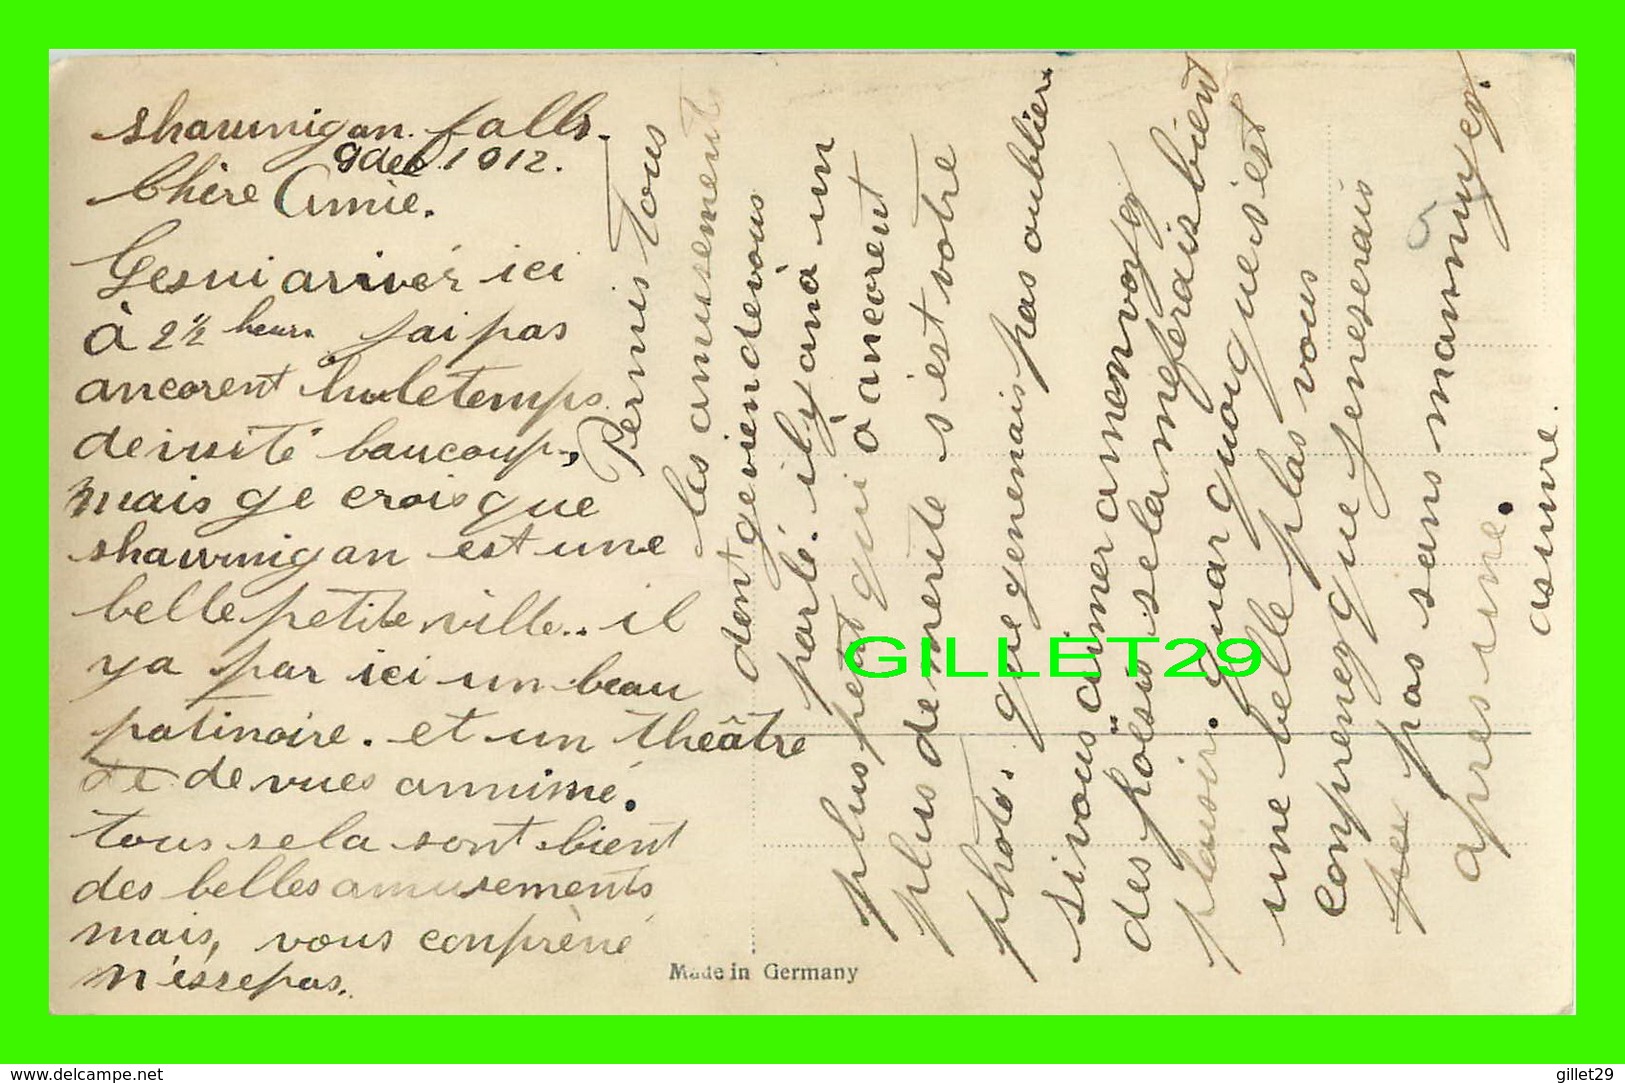 Shawnigan. falls.
9 dec 1912.
Chère Amie.
Gesui arivér ici
à 2½ heurs. jai pas
ancorent hu le temps
de visité baucoup,
mais ge crois que
shawnigan est une
belle petite ville.. il
ya par ici un beau
patinoire. et un théâtre
de de vues annimé.
tous sela sont bient
des belles amusements
mais, vous conprène
n'essepas.
Permis tous
les amusements
dont geviendevous
parlé. il yana un
plus petit qui à ancorent
plus de merite s'est votre
photo. que genenais pas oublier
si vous aimer a menvoyez
des poësis sela me ferais bient
plaisir. quar quoique s'est
une belle plas vous
comprenez que jeneserais
pas sans mannuyez.
apres une.
asuivre.
Made in Germany
GILLET29
www.delcampe.net
gillet29